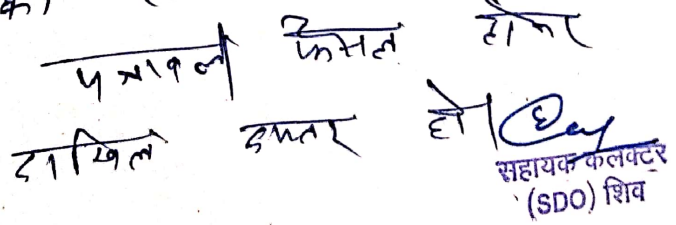 का
पत्रावली फैसल होकर
दाखिल दफ्तर हो।
सहायक कलक्टर
(SDO) शिव